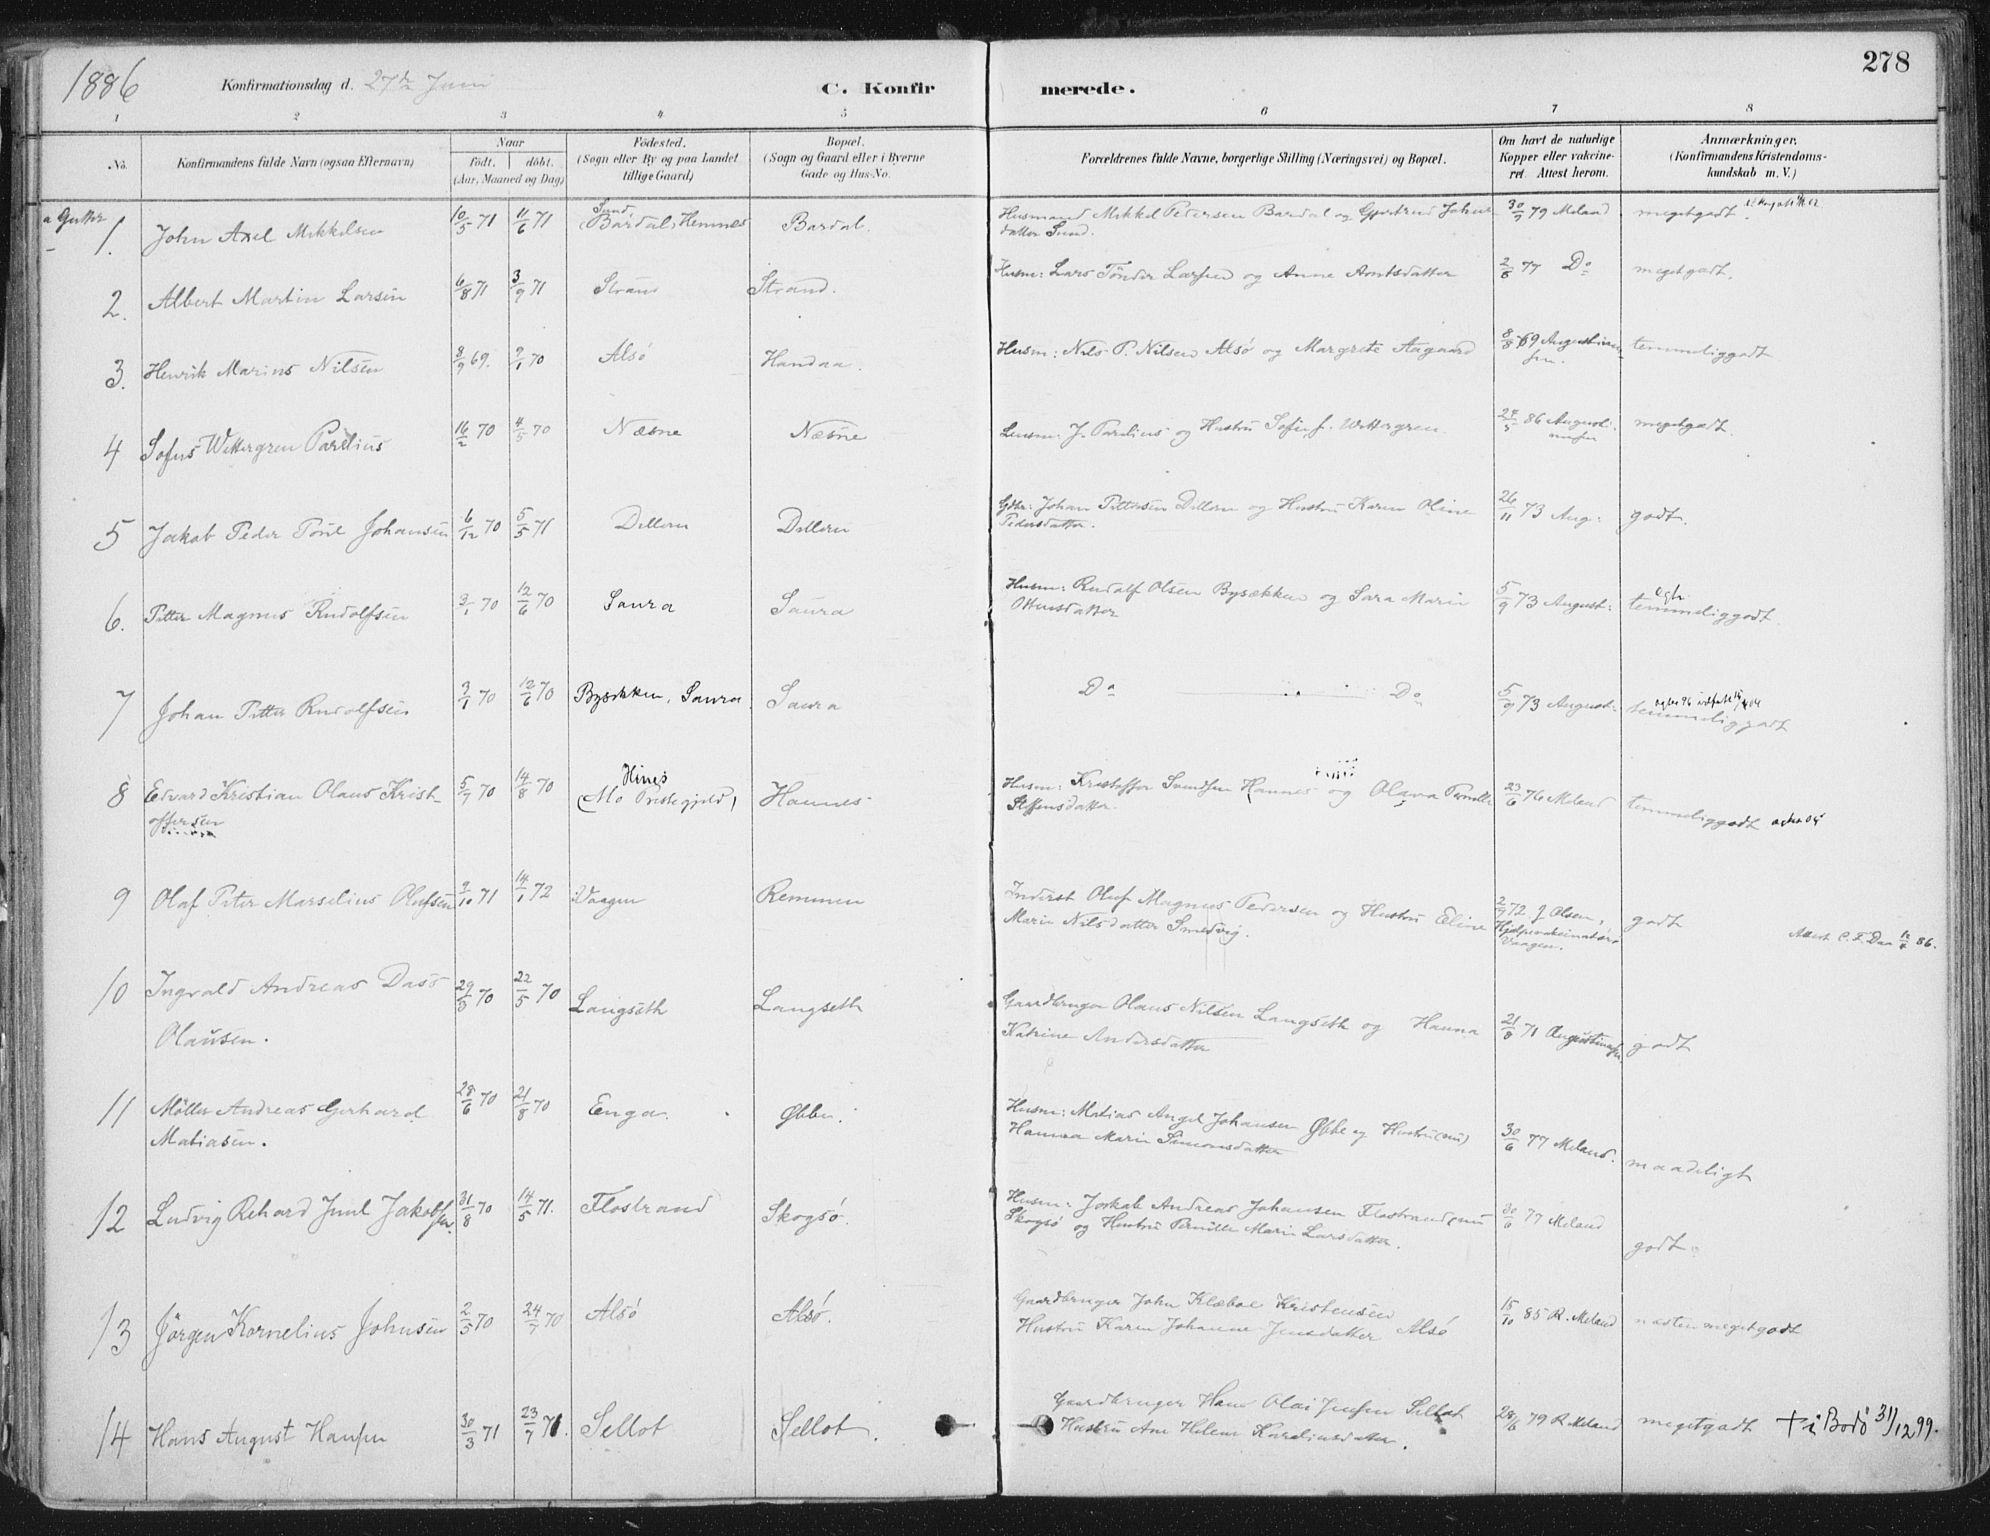 278
1886 Konfirmationsdag d. 27de Juni C. Konfirmerede.
1 2 3 4 5 6 7 8
No. Konfirmandens fulde Navn (ogsaa Efternavn) Naar födt. döbt. (Aar, Maaned og Dag) Födested. (Sogn eller By og paa Landet tillige Gaard) Bopæl. (Sogn og Gaard eller i Byerne Gade og Hus-No. Forældrenes fulde Navne, borgerlige Stilling (Næringsvei) og Bopæl. Om havt de naturlige Kopper eller vakcineret. Attest herom. Anmærkninger. (Konfirmandens Kristendomskundskab m. V.)
a Gutter
1. John Axel Mikkelsen 10/5 71 11/6 71 Sund Bardal, Hemnes Bardal. Husmand Mikkel Pedersen Bardal og Gjertrud Johns-
datter Sund. 30/9 79 Meland megetgodt.
2. Albert Martin Larsen 6/8 71 3/9 71 Strand Strand. Husm: Lars Tönder Larsen og Anne Arntsdatter 2/6 77 Do megetgodt.
3. Henrik Marius Nilsen 8/9 69. 9/1 70 Alsö Handaa. Husm: Nils P. Nilsen Alsö og Margrete Aagaard 8/8 69 Augustinussen. temmeliggodt
4 Sofus Wettergren Parelius 16/2 70 4/5 70 Næsne Næsne Lensm: J. Parelius og Hustru Sofie f. Wettergren. 24/5 86 Augustinussen megetgodt.
5 Jakob Peder Poul Johansen 6/12 70 5/5 71 Dillern Dillern Gdbr: Johan Pettersen Dillern og Hustru Karen Oline
Pedersdatter. 26/11 73 Aug: godt.
6. Petter Magnus Rudolfsen 3/1 70 12/6 70 Saura Saura Husm: Rudolf Olsen Bysækken og Sara Marie
Ottensdatter 5/9 73 August: temmeliggodt.
7 Johan Petter Rudolfsen 3/1 70 12/6 70 Bysekken, Saura Saura Do Do 5/9 73 August: temmeliggodt
8 Edvard Kristian Olaus Krist-
offersen 5/7 70 14/8 70 Hines (Mo Prestegjeld) Hannes Husm: Kristoffer Svendsen Hannes og Olava Pernille
Steffensdatter. 23/6 76 Meland temmeliggodt
9 Olaf Peter Marselius Olufsen 9/10 71 14/1 72 Vaagen Remmen Inderst Oluf Magnus Pedersen og Hustru Eline
Marie Nilsdatter Smedvig. 2/9 72 J Olsen, Hjelpevakcinatör Vaagen. godt Attest C. F. Daa 12/4 86.
10 Ingvald Andreas Dass
Olausen. 29/3 70 22/5 70 Langseth Langseth Gaardbruger Olaus Nilsen Langseth og Hanna
Katrine Andersdatter 21/8 71 Augustinussen godt
11 Möller Andreas Gerhard
Matiasen. 28/6 70 21/8 70 Enga. Øbbe. Husm: Matias Angel Johansen Øbbe og Hustru (nu)
Hanna Marie Simonsdatter 30/6 77 Meland. maadeligt
12 Ludvig Rehard Juul Jakobsen. 31/8 70 14/5 71. Flostrand Skogsö. Husm: Jakob Andreas Johansen Flostrand, nu
Skogsö og Hustru Pernille Marie Larsdatter. 30/6 77 Meland godt.
13 Jörgen Kornelius Johnsen 2/5 70 24/7 70 Alsö Alsö. Gaardbruger John Klæboe Kristensen
Hustru Karen Johanne Jensdatter Alsö 15/10 85 R. Meland næsten megetgodt
14 Hans August Hansen 30/3 71 23/7 71. Sellot Sellot. Gaardbruger Hans Olai Jensen Sellot
Hustru Ane Helene Kardiusdatter. 28/6 79 R. Meland megetgodt + i Bodö 31/12 99.